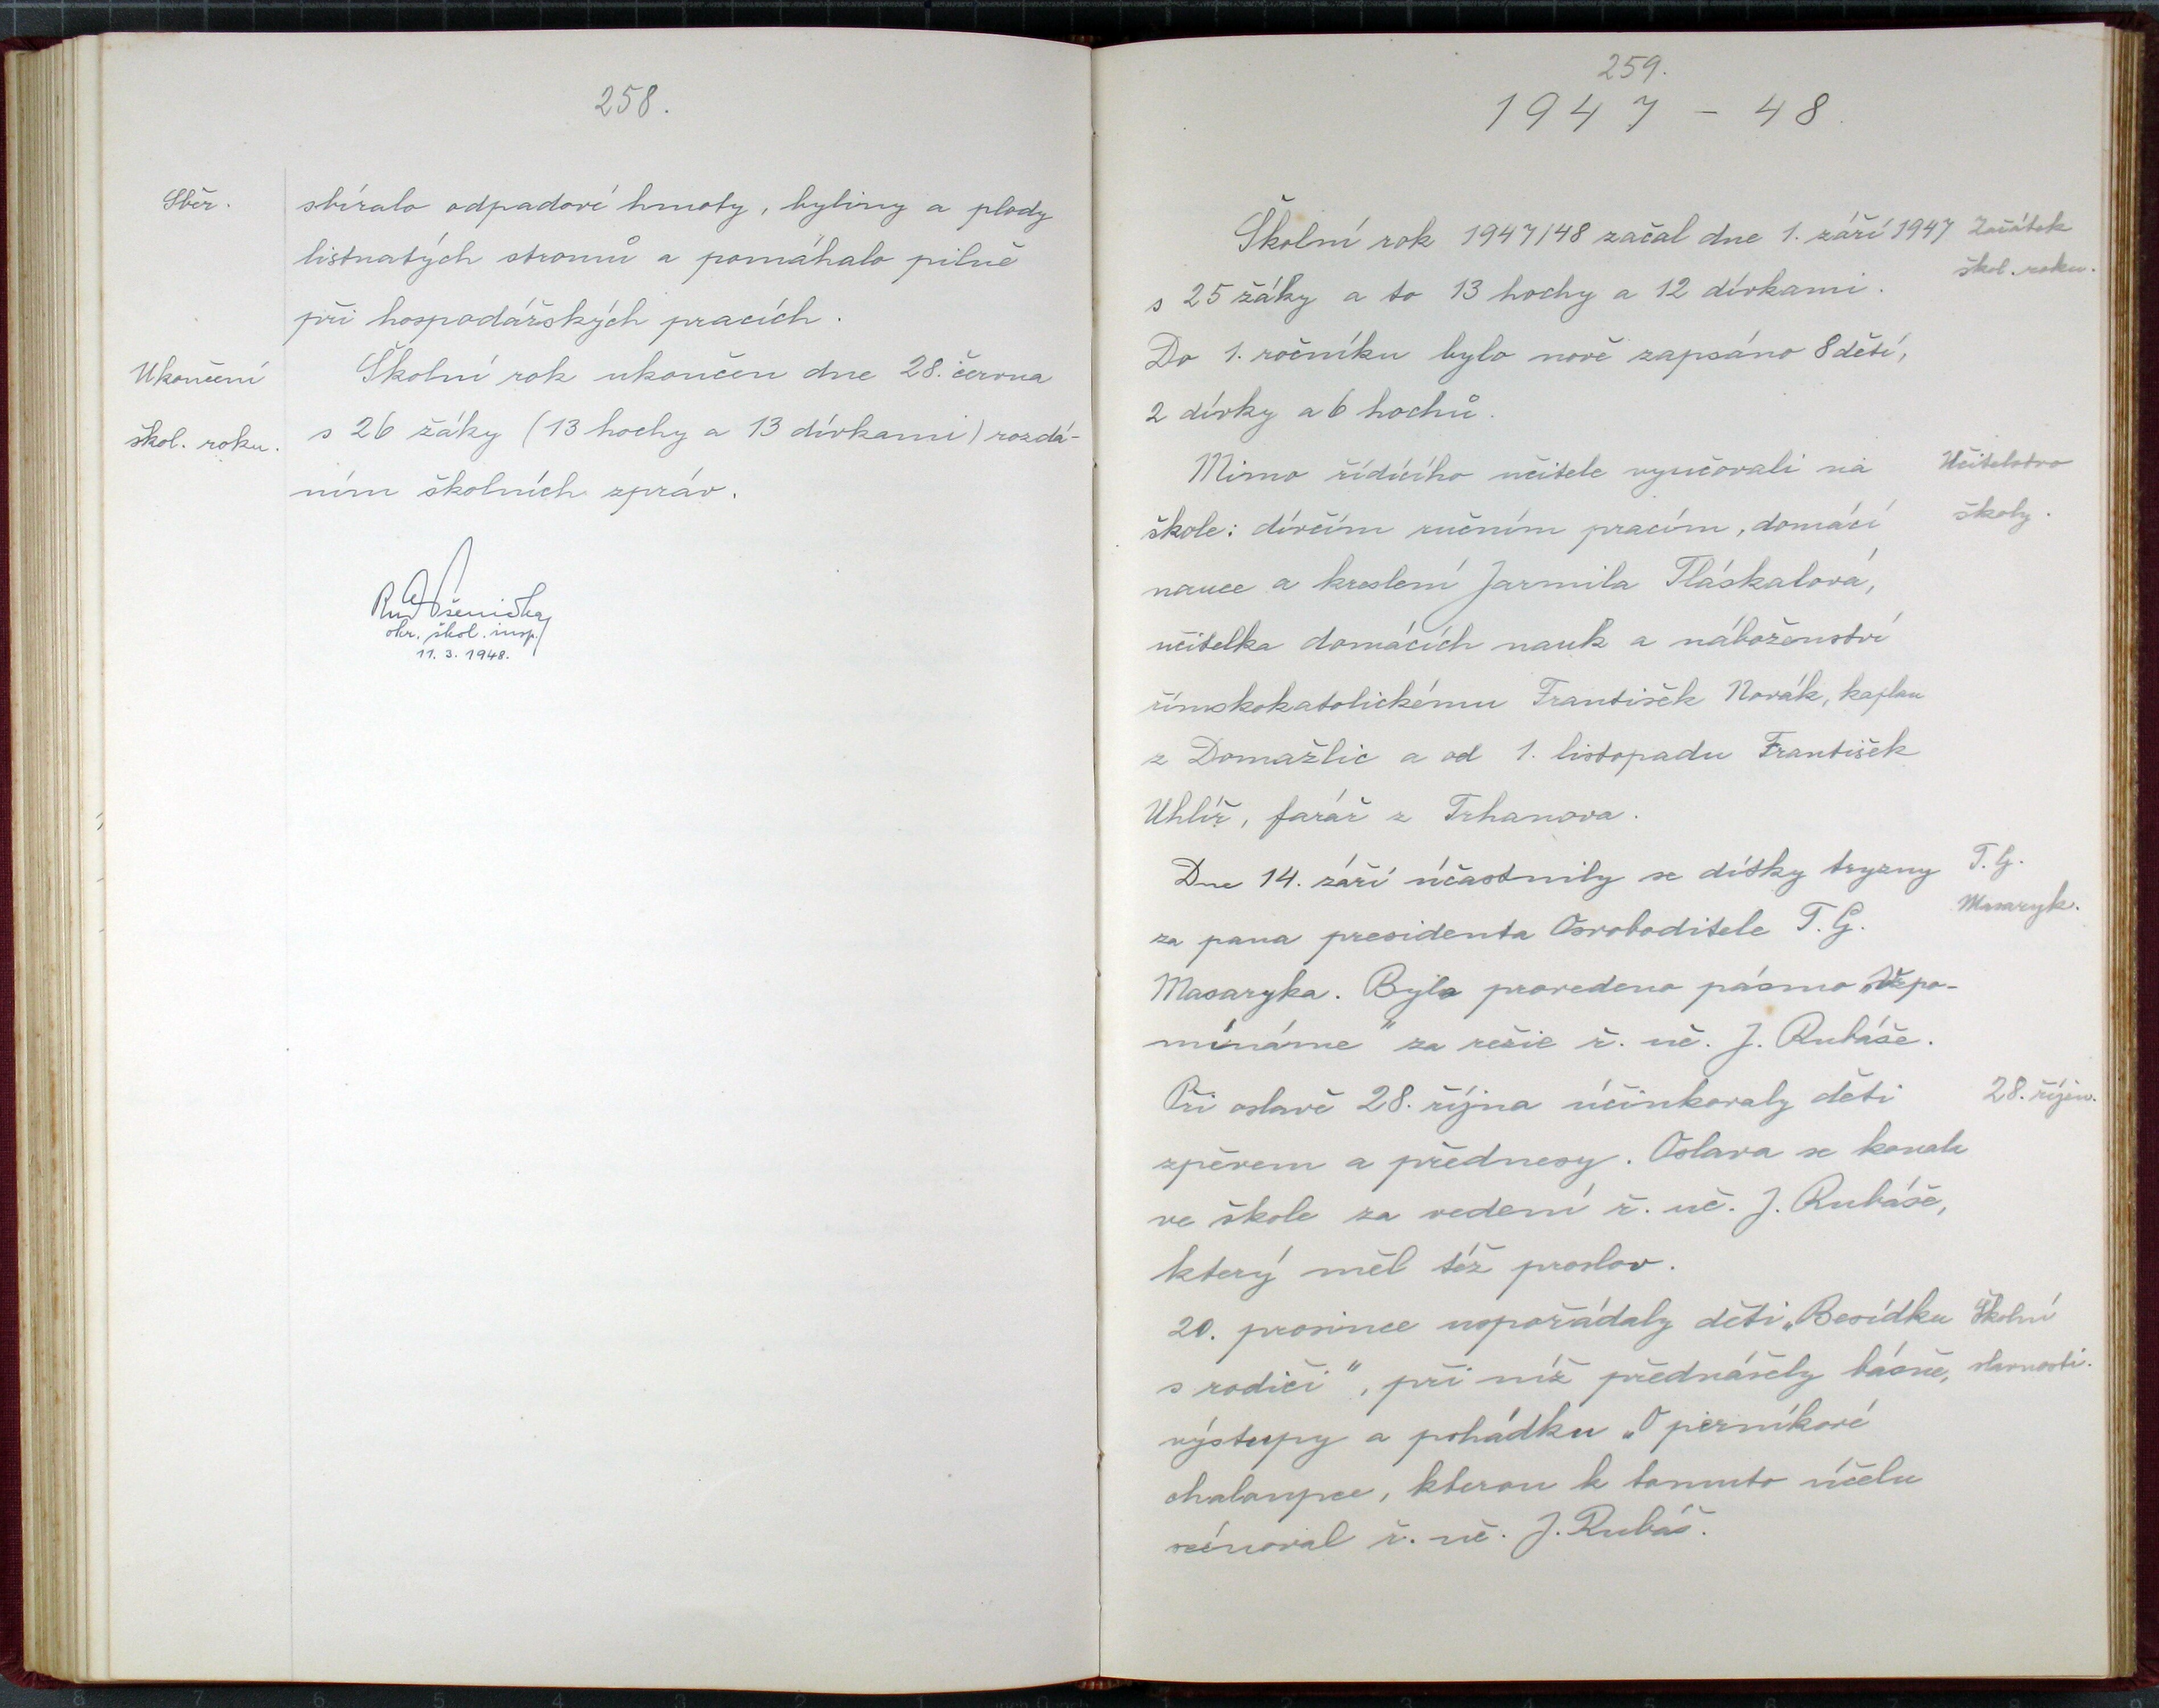 258.
Sběr.
sbíralo odpadové hmoty, byliny a plody
listnatých stromů a pomáhalo pilně
při hospodářských pracích.
Ukončení
škol. roku.
Školní rok ukončen dne 28. června
s 26 žáky (13 hochy a 13 dívkami) rozdá-
ním školních zpráv.
okr. škol. insp.
11. 3. 1948.
259.
1947 - 48
Školní rok 1947/48 začal dne 1. září 1947
Začátek
škol. roku.
s 25 žáky a to 13 hochy a 12 dívkami.
Do 1. ročníku bylo nově zapsáno 8 dětí,
2 dívky a 6 hochů.
Mimo řídícího učitele vyučovali na
Učitelstvo
školy.
škole: dívčím ručním pracím, domácí
nauce a kreslení Jarmila Tláskalová,
učitelka domácích nauk a náboženství
římskokatolickému František Novák, kaplan
z Domažlic a od 1. listopadu František
Uhlíř, farář z Trhanova.
Dne 14. září účastnily se dítky tryzny
T. G.
Masaryk.
za pana presidenta Osvoboditele T. G.
Masaryka. Bylo provedeno pásmo „Vzpo-
mínáme" za režie ř. uč. J. Rubáše.
Při oslavě 28. října účinkovaly děti
28. říjen.
zpěvem a přednesy. Oslava se konala
ve škole za vedení ř. uč. J. Rubáše,
který měl též proslov.
20. prosince uspořádaly děti „Besídku
Školní
slavnosti.
s rodiči", při níž přednášely básně,
výstupy a pohádku „O perníkové
chaloupce, kterou k tomuto účelu
scénoval ř. uč. J. Rubáš.